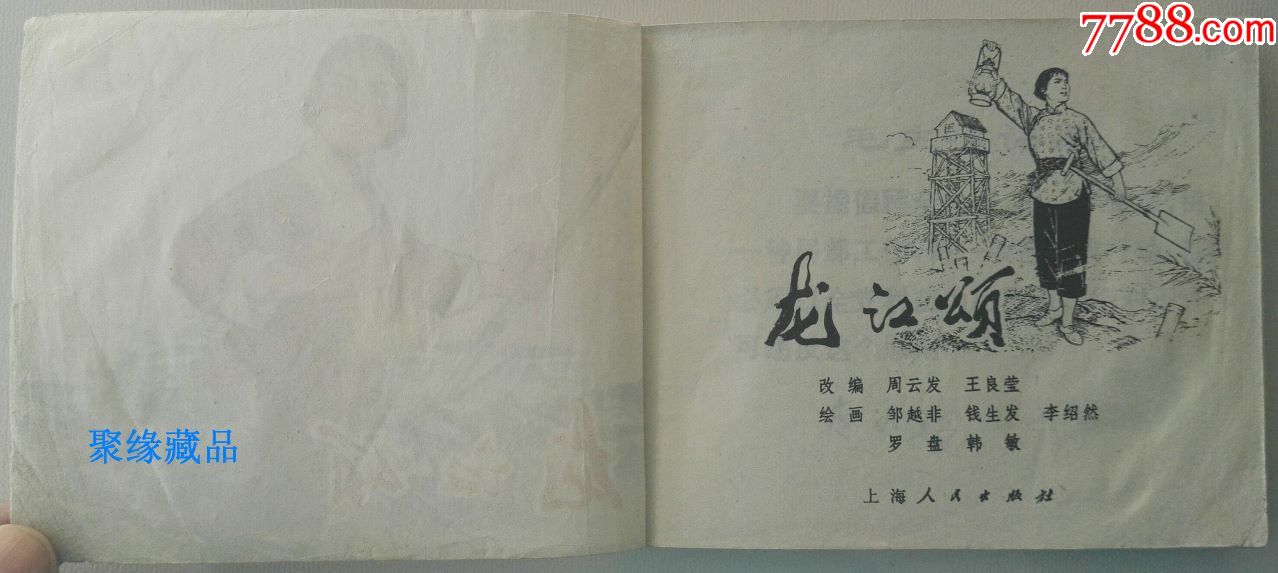 7788.com
聚缘藏品
龙江颂
改编 周云发 王良莹
绘画 邹越非 钱生发 李绍然
罗盘 韩敏
上海人民出版社